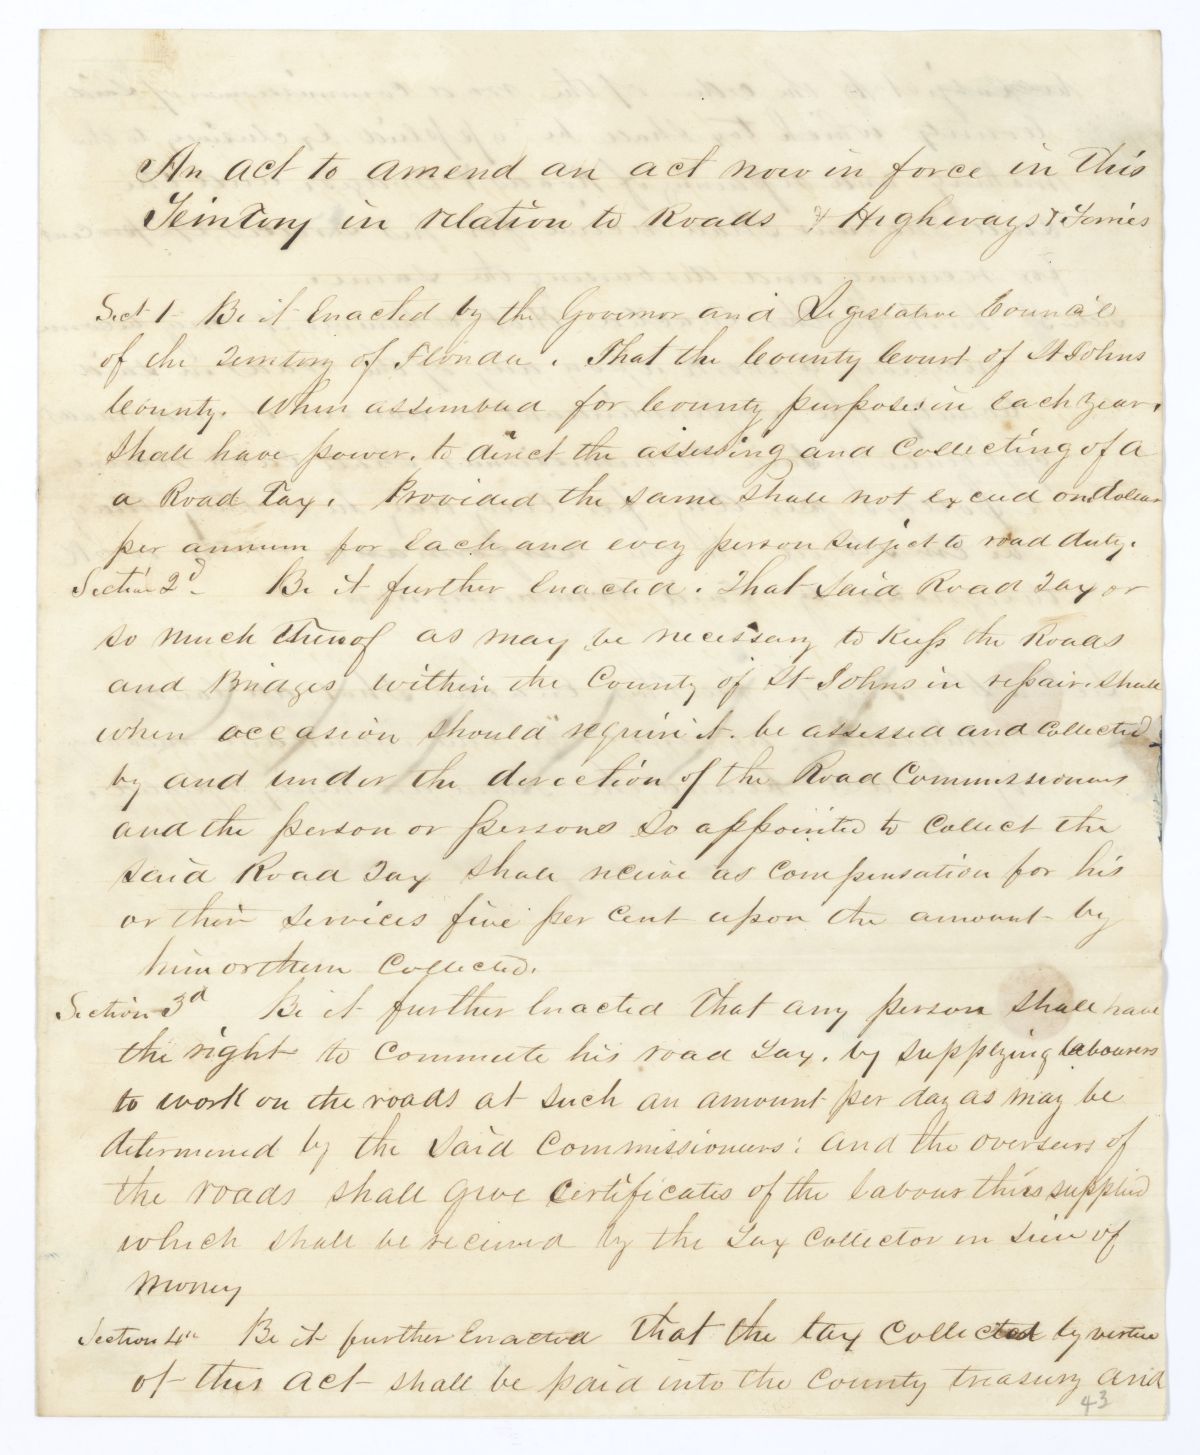 An act to amend an act now in force in this
Territory in relation to Roads & Highways & Ferries
Sect 1 Be it Enacted by the Governor and Legislative Council
of the Territory of Florida. That the County Court of St Johns
County. When assembled for County purposes in Each year.
Shall have power. to direct the assessing and Collecting of a
a Road Tax. Provided the same shall not exceed one dollar
per annum for Each and every person subject to road duty.
Section 2d Be it further Enacted. That said Road Tax or
so much thereof as may be necessary to Keep the Roads
and Bridges within the County of St Johns in repair. shall
when occasion should require it. be assessed and Collected
by and under the direction of the Road Commissioners
and the person or persons so appointed to Collect the
said Road Tax shall receive as Compensation for his
or their services five per cent upon the amount by
him or them Collected.
Section 3d Be it further Enacted That any person shall have
the right to Commute his road Tax. by supplying labourers
to work on the roads at such an amount per day as may be
determened by the said Commissioners: and the overseers of
the roads shall give certificates of the labour thus supplied
which shall be received by the Tax Collector in lieu of
Money
Section 4th Be it further Enacted That the tax Collected by vertue
of this act shall be paid into the County treasury and
43